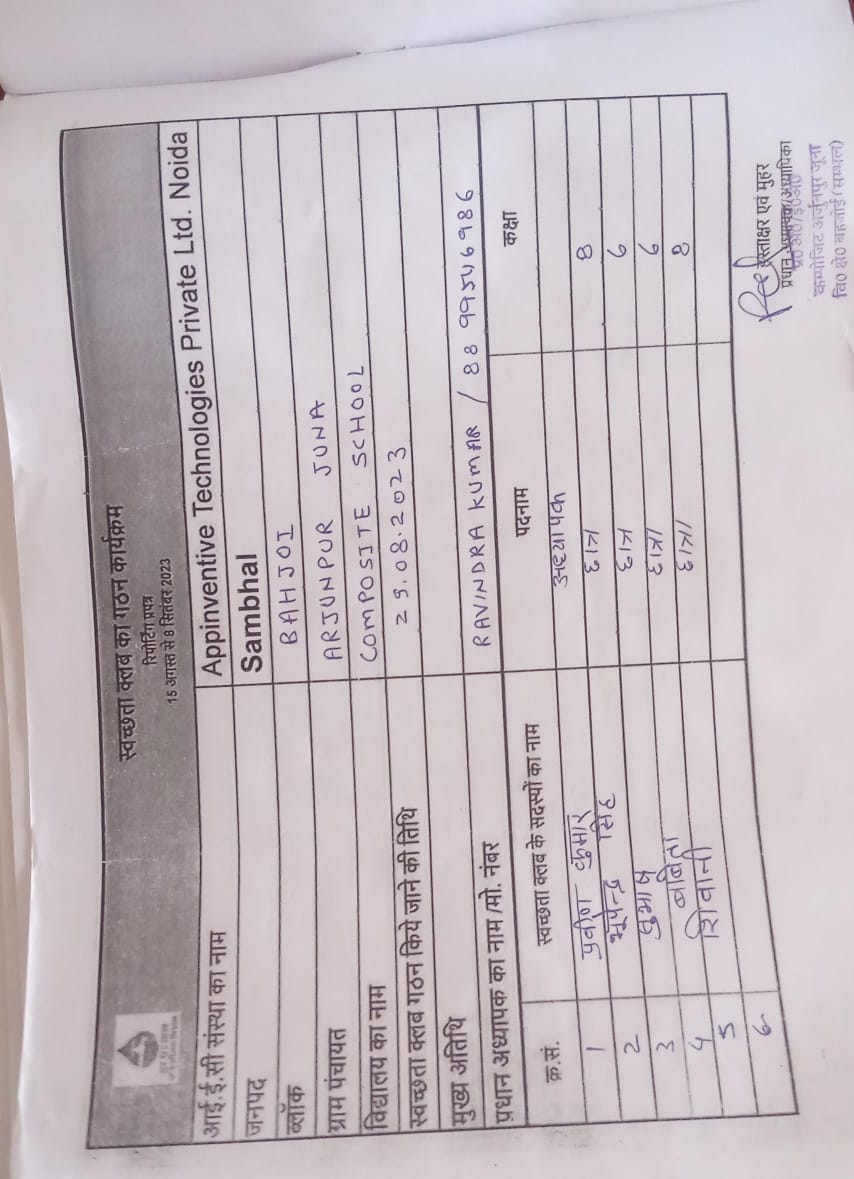 स्वच्छता क्लब का गठन कार्यक्रम
रिपोर्टिंग प्रपत्र
15 अगस्त से 8 सितंबर 2023
आई.ई.सी संस्था का नाम Appinventive Technologies Private Ltd. Noida
जनपद Sambhal
ब्लॉक BAHJOI
ग्राम पंचायत ARJUNPUR JUNA
विद्यालय का नाम COMPOSITE SCHOOL
स्वच्छता क्लब गठन किये जाने की तिथि 29.08.2023
मुख्य अतिथि
प्रधान अध्यापक का नाम /मो. नंबर RAVINDRA KUMAR / 88 99546986
क्र.सं. स्वच्छता क्लब के सदस्यों का नाम पदनाम कक्षा
1 प्रवीण कुमार अध्यापक
2 भूपेन्द्र सिंह छात्र 8
3 सुभाष छात्र 6
4 बबिता छात्रा 6
5 शिवानी छात्रा 8
6
हस्ताक्षर एवं मुहर
प्रधान अध्यापक/अध्यापिका
प्र०अ०/इ०अ०
कम्पोजिट अर्जुनपुर जूना
वि० क्षे० बहजोई (सम्भल)